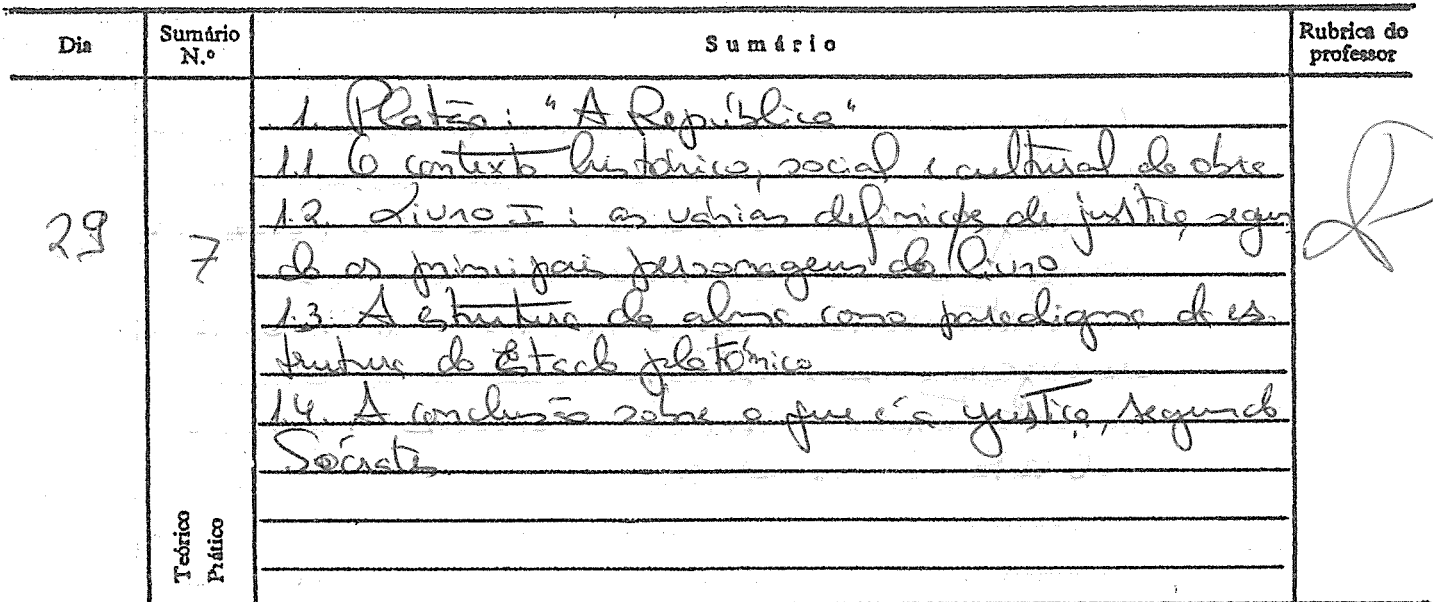 Dia
Sumário N.º
Sumário
Rubrica do professor
29
7
1. Platão: "A República"
1.1 O contexto histórico, social e cultural da obra
1.2. Livro I: as várias definições de justiça, segun
do as principais personagens do livro
1.3. A estrutura da alma como paradigma da es-
trutura do Estado platónico
1.4. A conclusão sobre o que é a justiça, segundo
Sócrates
Teórico
Prático